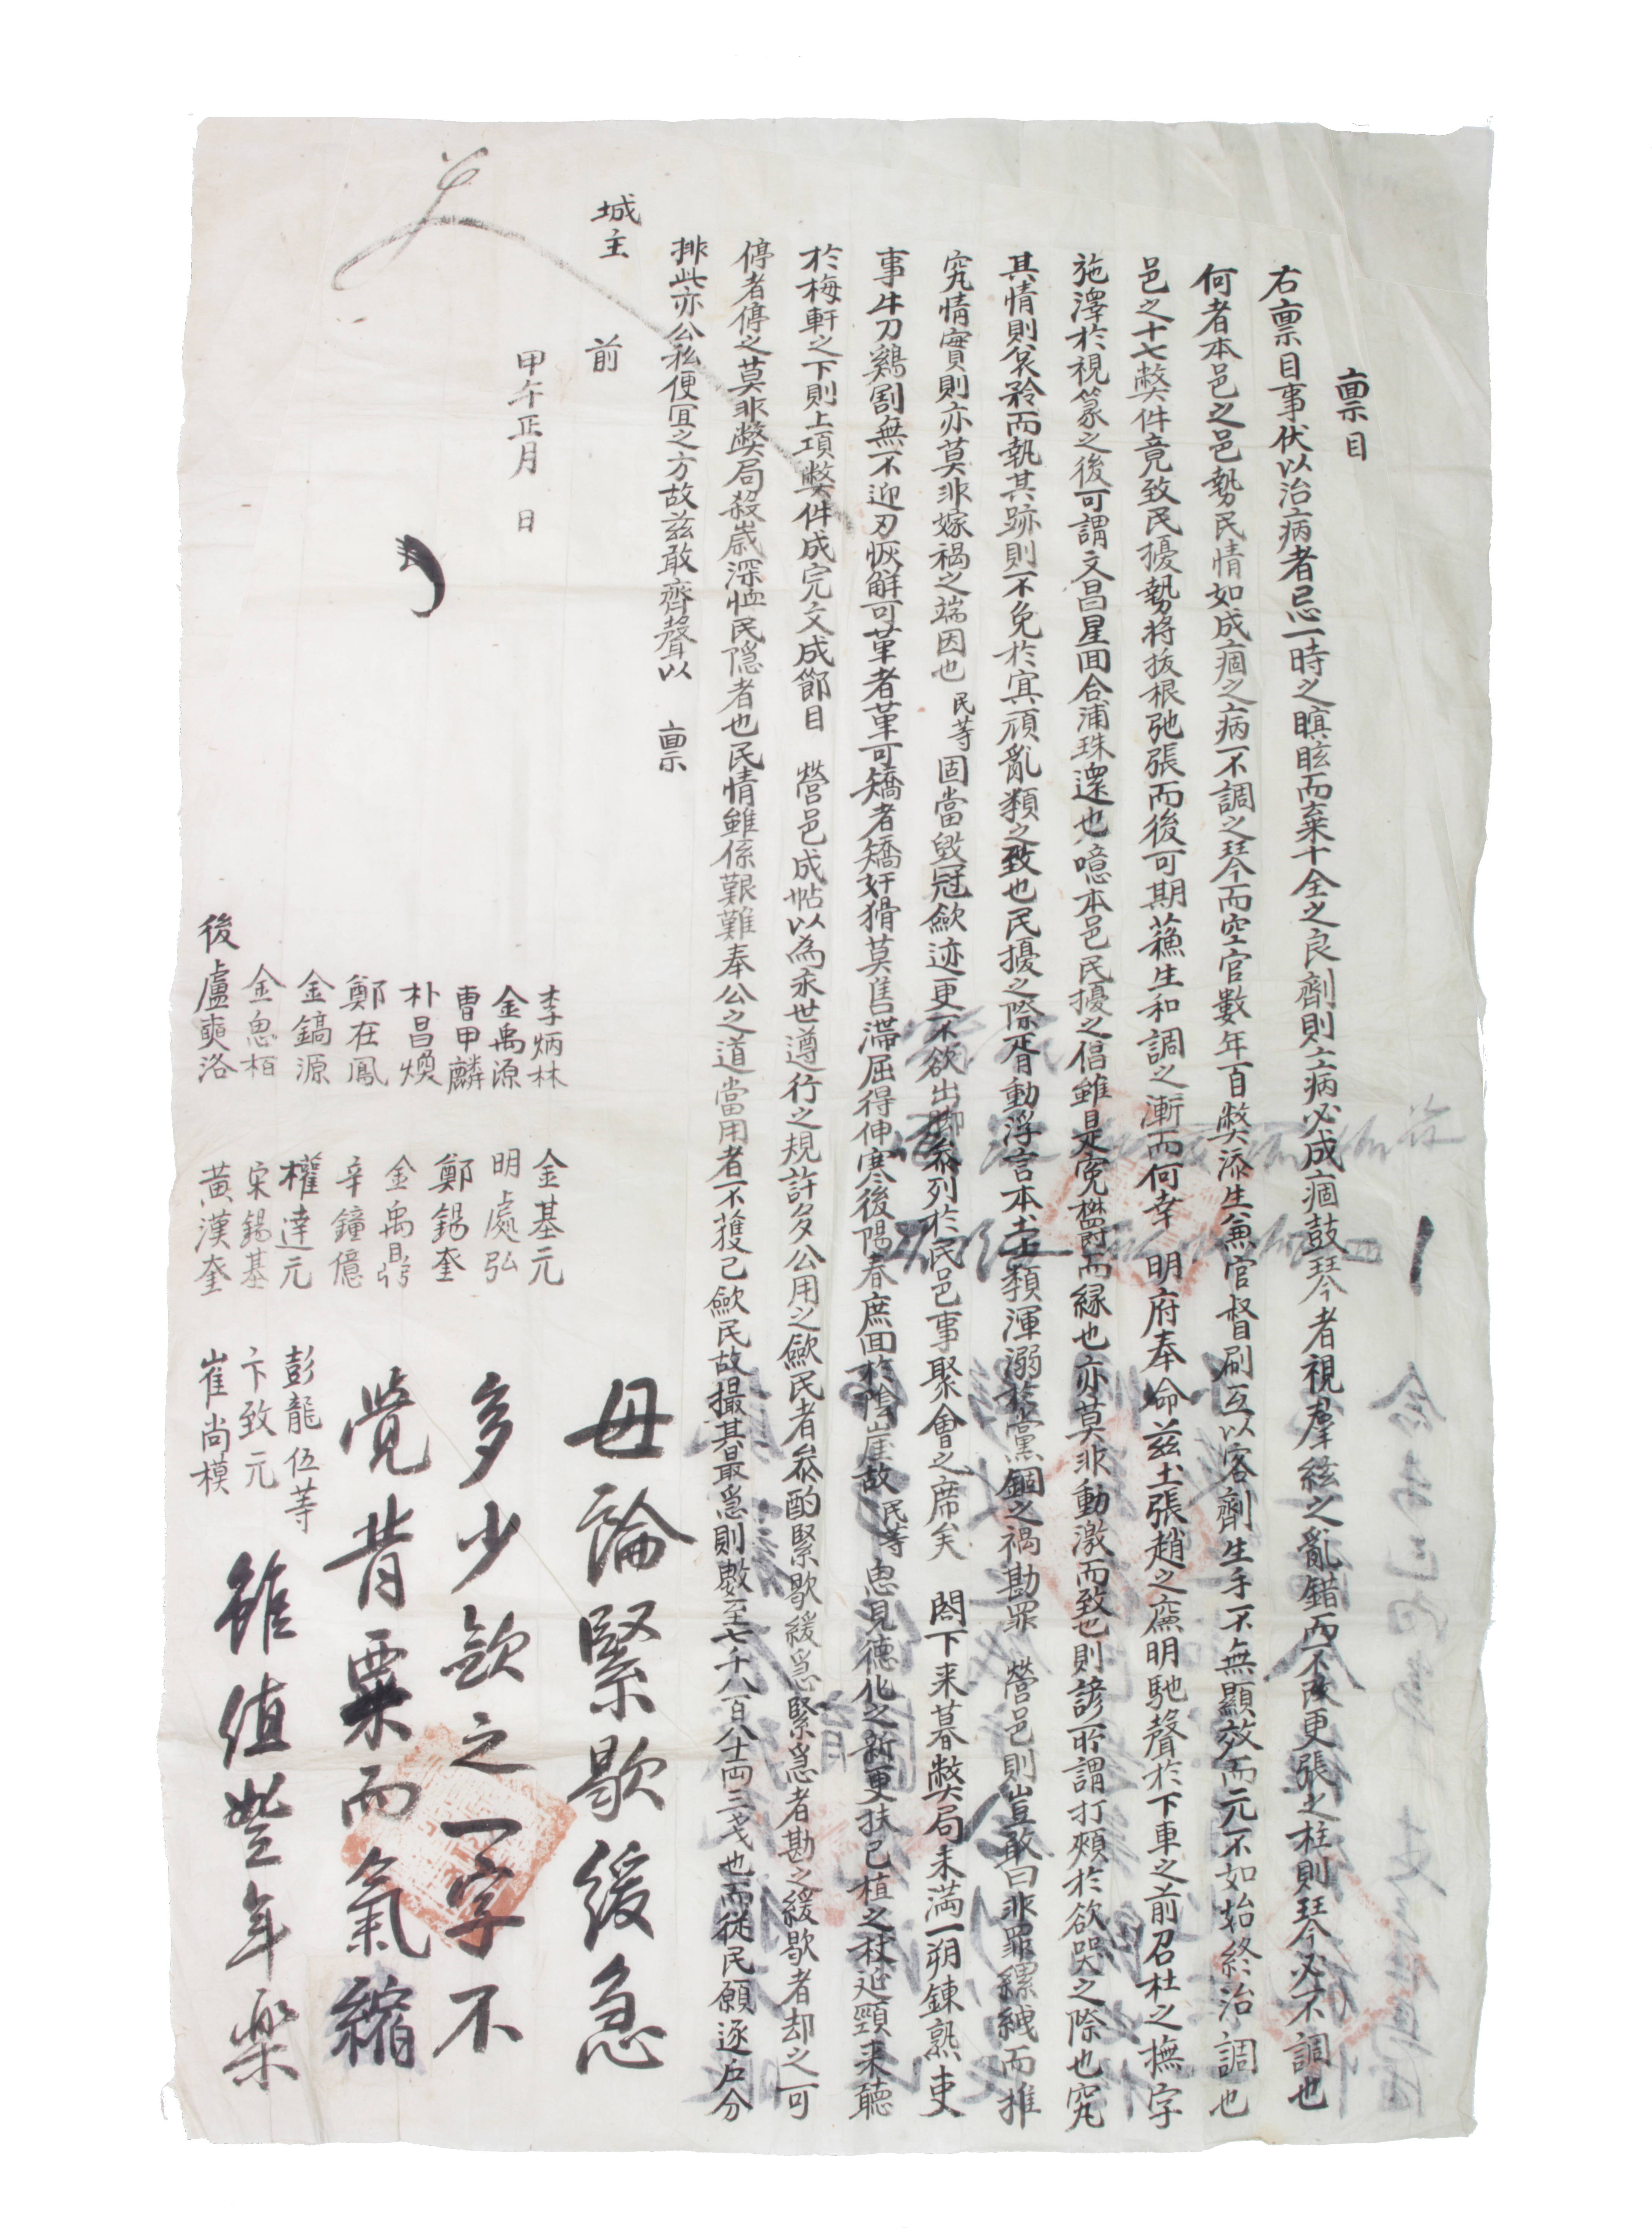 稟目
右稟目事伏以治病者忌一時之瞑眩而棄十全之良劑則病必成痼鼓琴者視羣絃之亂錯而不改更張之柱則琴必不調也
何者本邑之邑勢民情如成痼之病不調之琴今而空官數年百弊添生兼官督刷互以客劑生手一不無顯效而元不如始終治調也
邑之十七弊件竟致民擾勢將拔根弛張而後可期蘓生和調之漸而何幸 明府奉命玆土張趙之廉明馳聲於下車之前召杜之撫字
施澤於視篆之後可謂文昌星回合浦珠還也噫本邑民擾之倡雖是寃欎而緣也亦莫非動激而致也則諺所謂打頰於欲哭之際也究
其情則哀矜而執其跡則不免於冥頑亂類之致也民擾之際胥動浮言本土士類渾溺於黨錮之禍勘罪 營邑則豈敢曰非罪縲絏而推
究情實則亦莫非嫁禍之端因也 民等固當毁冠歛迹更不欲出脚叅列於民邑事聚會之席矣 閤下来暮弊局未滿一朔鍊熟吏
事牛刀鷄割無不迎刃恢解可革者革可矯者矯奸猾莫售滯屈得伸寒後陽春庶回於陰崖故 民等思見德化之新更扶已植之杖延頸来聽
於梅軒之下則上項弊件成完文成節目 營邑成帖以為永世遵行之規許多公用之歛民者叅酌緊歇緩急緊急者勘之緩歇者却之可
停者停之莫非弊局殺歲深恤民隱者也民情雖係艱難奉公之道當用者不獲已歛民故撮其最急則數至七千八百八十両三戔也而從民願逐戶分
排此亦公私便宜之方故玆敢齊聲以 稟
城主 前
甲午正月 日
李炳林 金基元
金禹源 明處弘
曺甲麟 鄭錫奎
朴昌煥 金禹鼎
鄭在鳳 辛鐘億
金鎬源 權達元 彭龍伍等
金思栢 宋錫基 卞致元
後 盧奭洛 黃漢奎 崔尚模
毋論緊歇緩急
多少歛之一字不
覺背粟而氣縮
雖值豐年樂